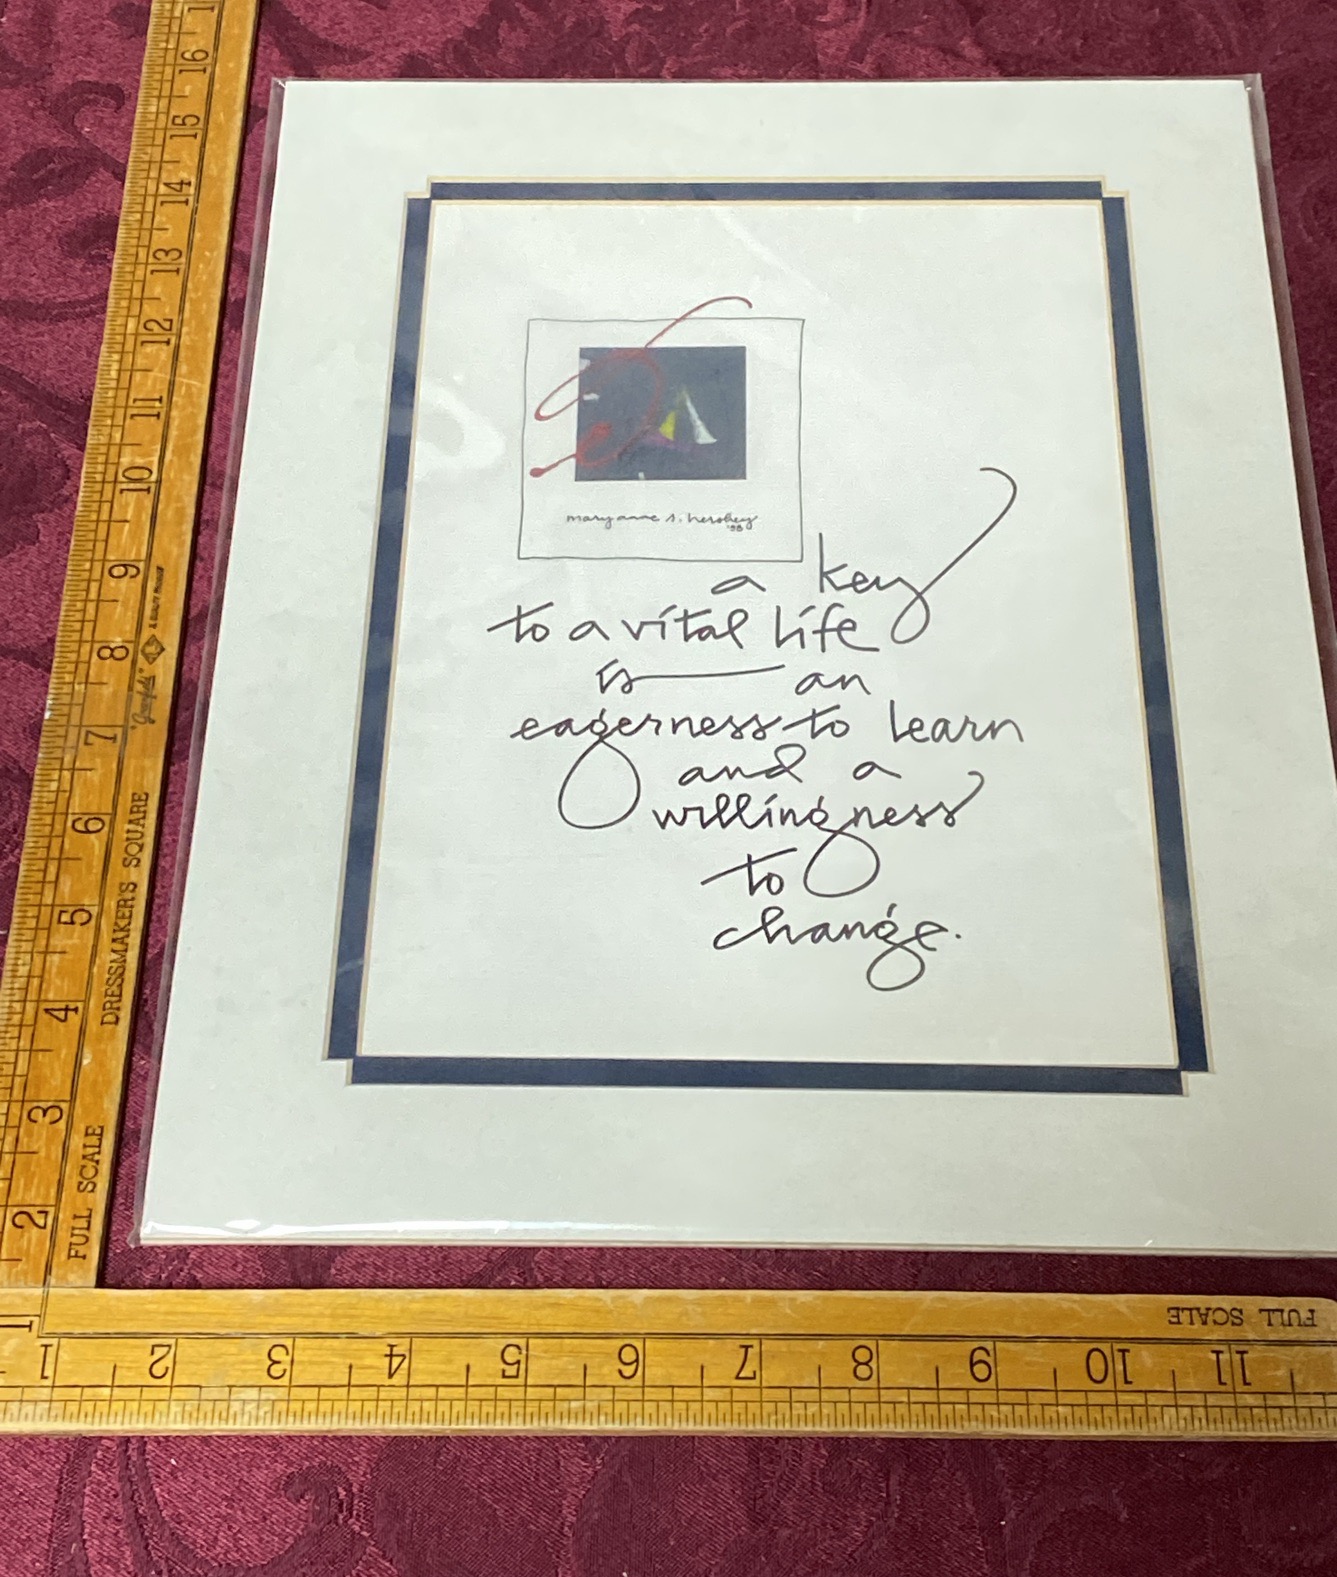 mary anne s. hershey
'98
a key
to a vital life
is an
eagerness to learn
and a
willingness
to
change.
16
15
14
13
12
11
10
9
8
7
6
5
4
3
2
1
DRESSMAKER'S SQUARE
FULL SCALE
FULL SCALE
1 2 3 4 5 6 7 8 9 10 11